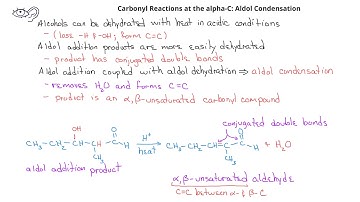 Carbonyl Reactions at the alpha-C: Aldol Condensation
Alcohols can be dehydrated with heat in acidic conditions
- (loss -H & -OH; form C=C)
Aldol addition products are more easily dehydrated
- product has conjugated double bonds
Aldol addition coupled with aldol dehydration ⇒ aldol condensation
- removes H₂O and forms C=C
- product is an α,β-unsaturated carbonyl compound
conjugated double bonds
OH O H⁺ O
CH₃-CH₂-CH-CH-C-H → CH₃-CH₂-CH=C-C-H + H₂O
CH₃ heat CH₃
aldol addition product
α,β-unsaturated aldehyde
C=C between α- & β-C